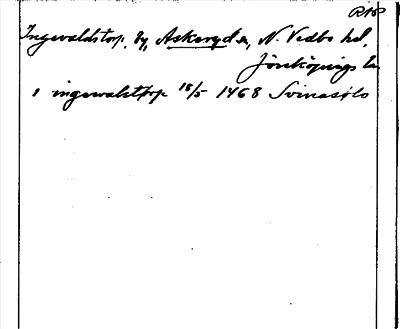 Ingevaldstorp, by, Askeryd sn, N. Vedbo hd,
Jönköpings län
i ingewalstorp 18/5 1468 Svinasjö